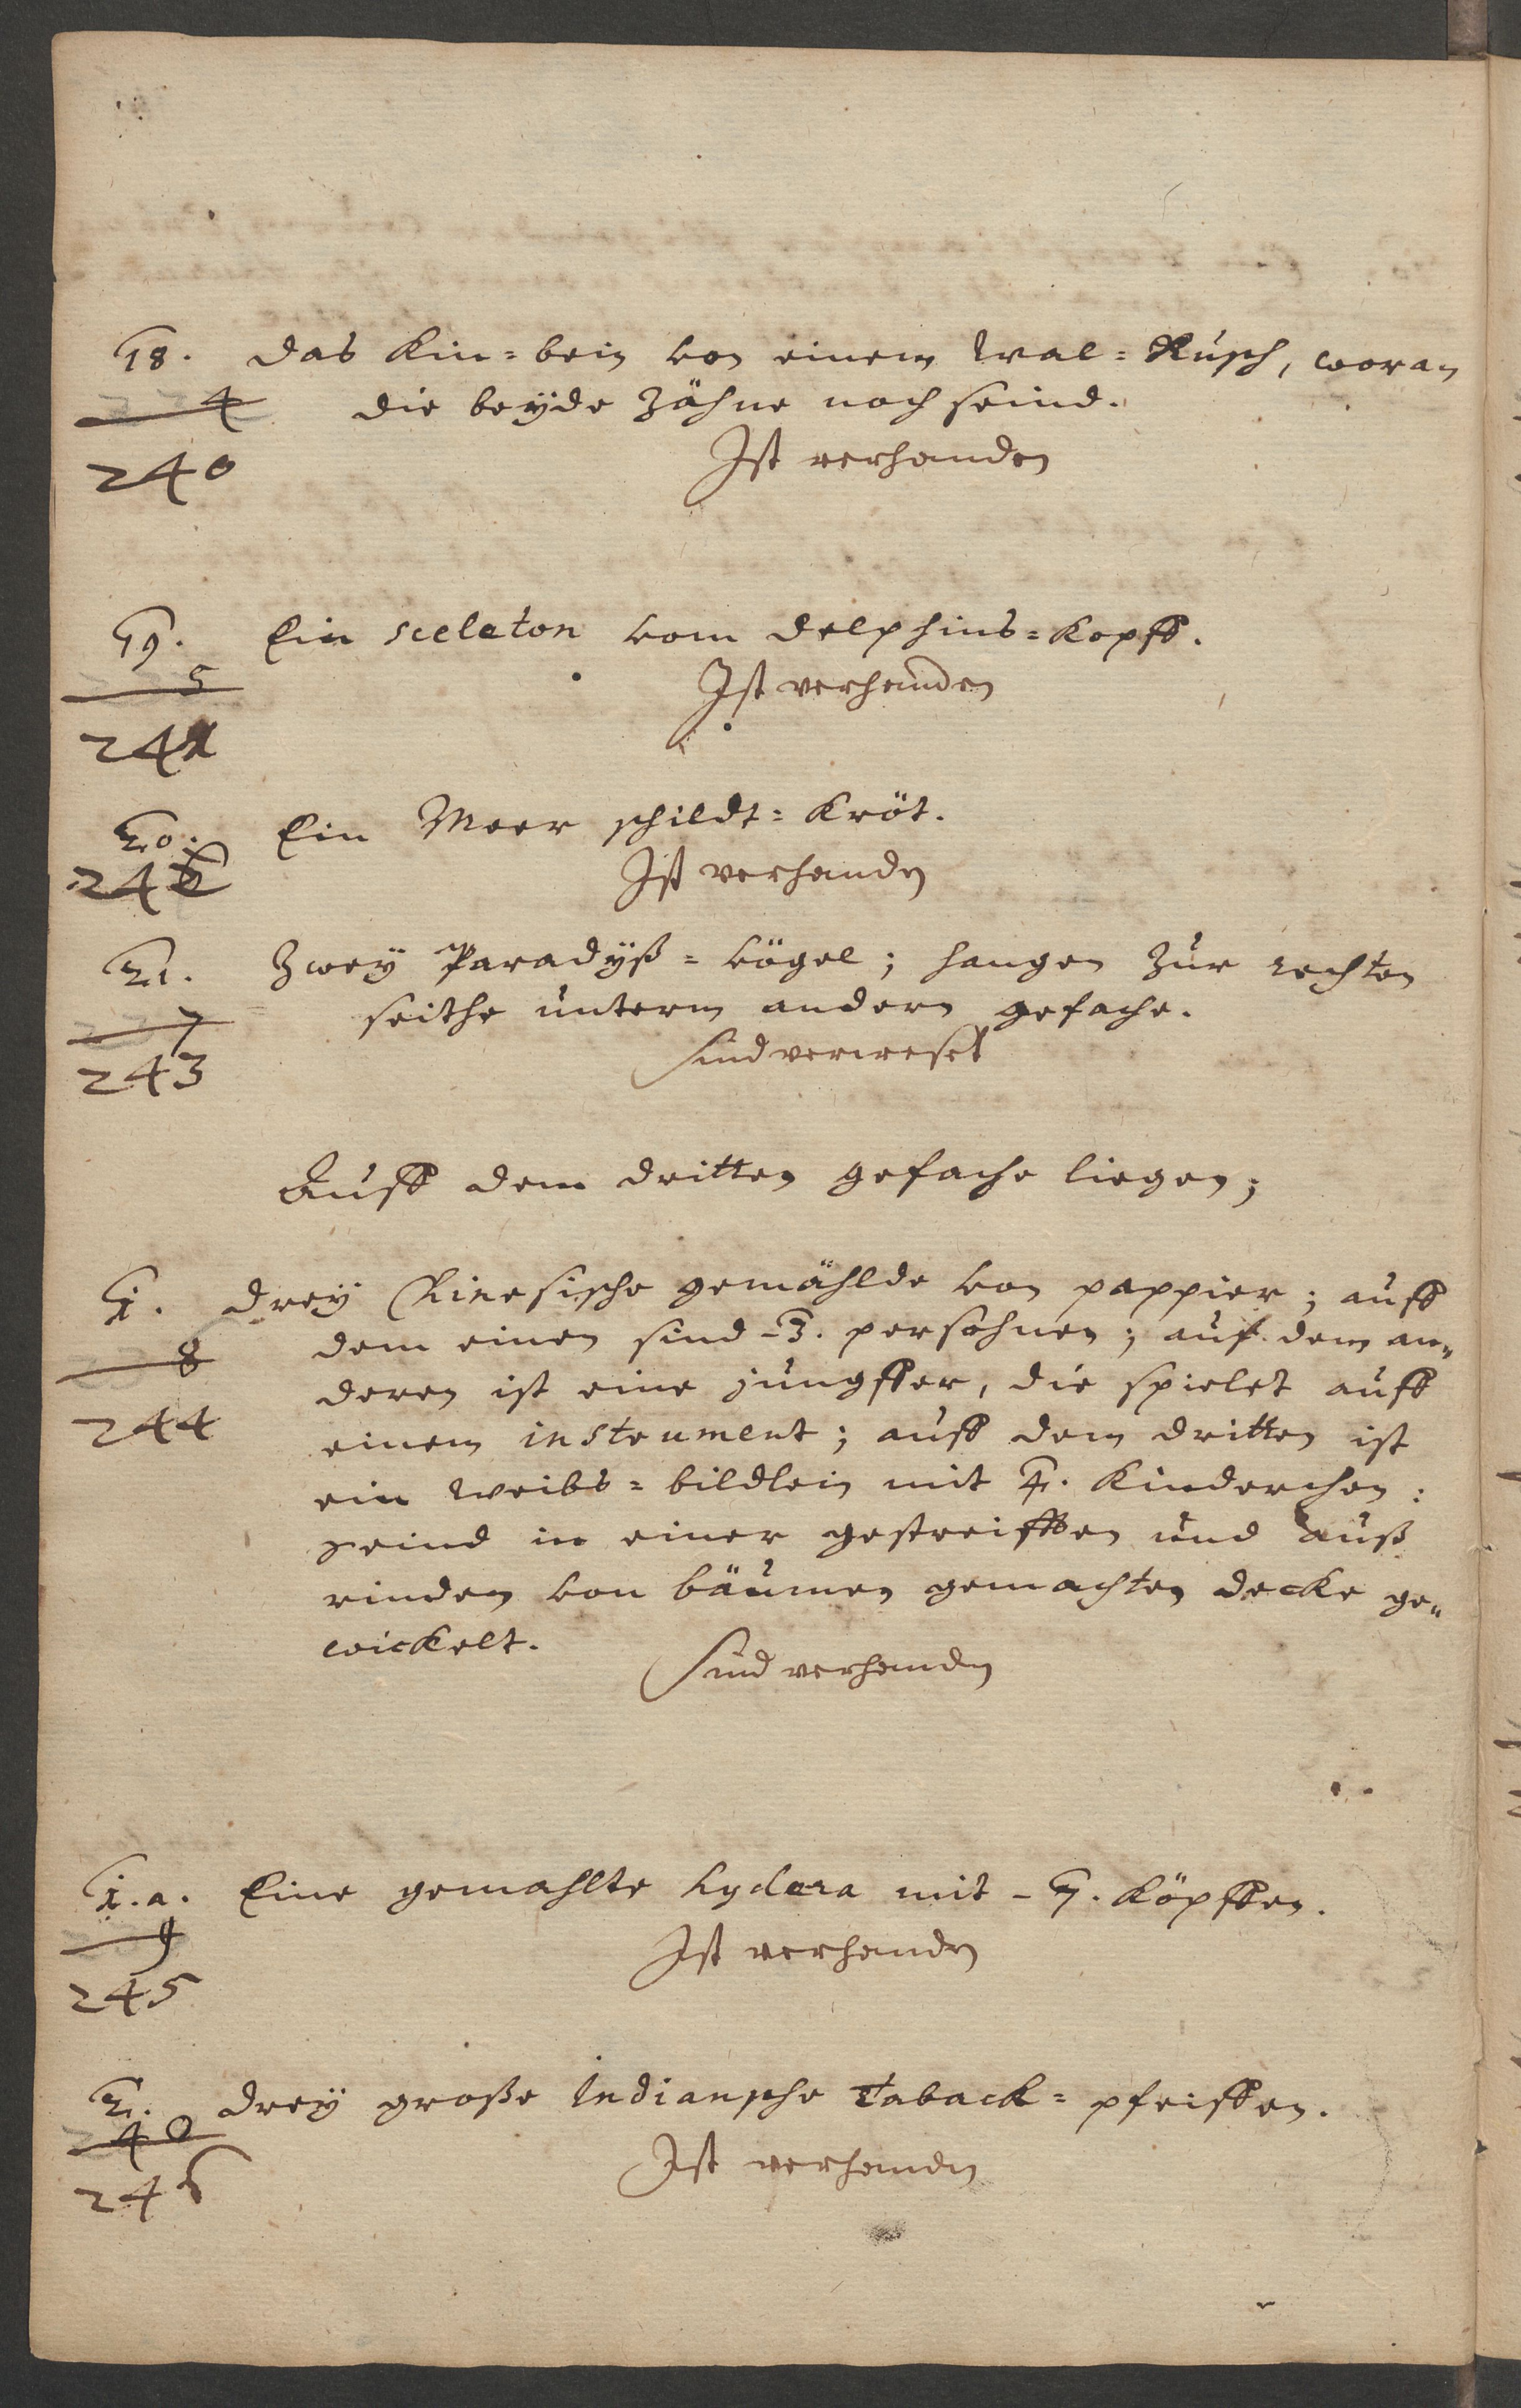 18. Das Kin=bein von einem Wal=Rusch, woran
4 die beyde Zähne noch seind.
240 Ist verhanden
19. Ein sceleton vom Delphins=Kopff.
5 Ist verhanden
241
20. Ein Meer schildt=Kröt.
242 Ist verhanden
21. Zwey Paradyß=vögel; hangen zur rechten
7 seithe unterm andern gefache.
243 sind verweset
Auff dem dritten gefache liegen;
1. Drey Chinesische gemählde von pappier; auff
8 dem einen sind -3. persohnen; auf dem an„
244 deren ist eine jungffer, die spielet auff
einem instrument; auff dem dritten ist
ein weibs=bildlein mit 4. Kinderchen:
seind in einer gestreifften und auß
rinden von bäumen gemachten decke ge„
wickelt. Sind verhanden
1.a. Eine gemahlte hydera mit -7. Köpffen.
9 Ist verhanden
245
2. Drey große Indiansche Taback=pfeiffen.
40 Ist verhanden
246